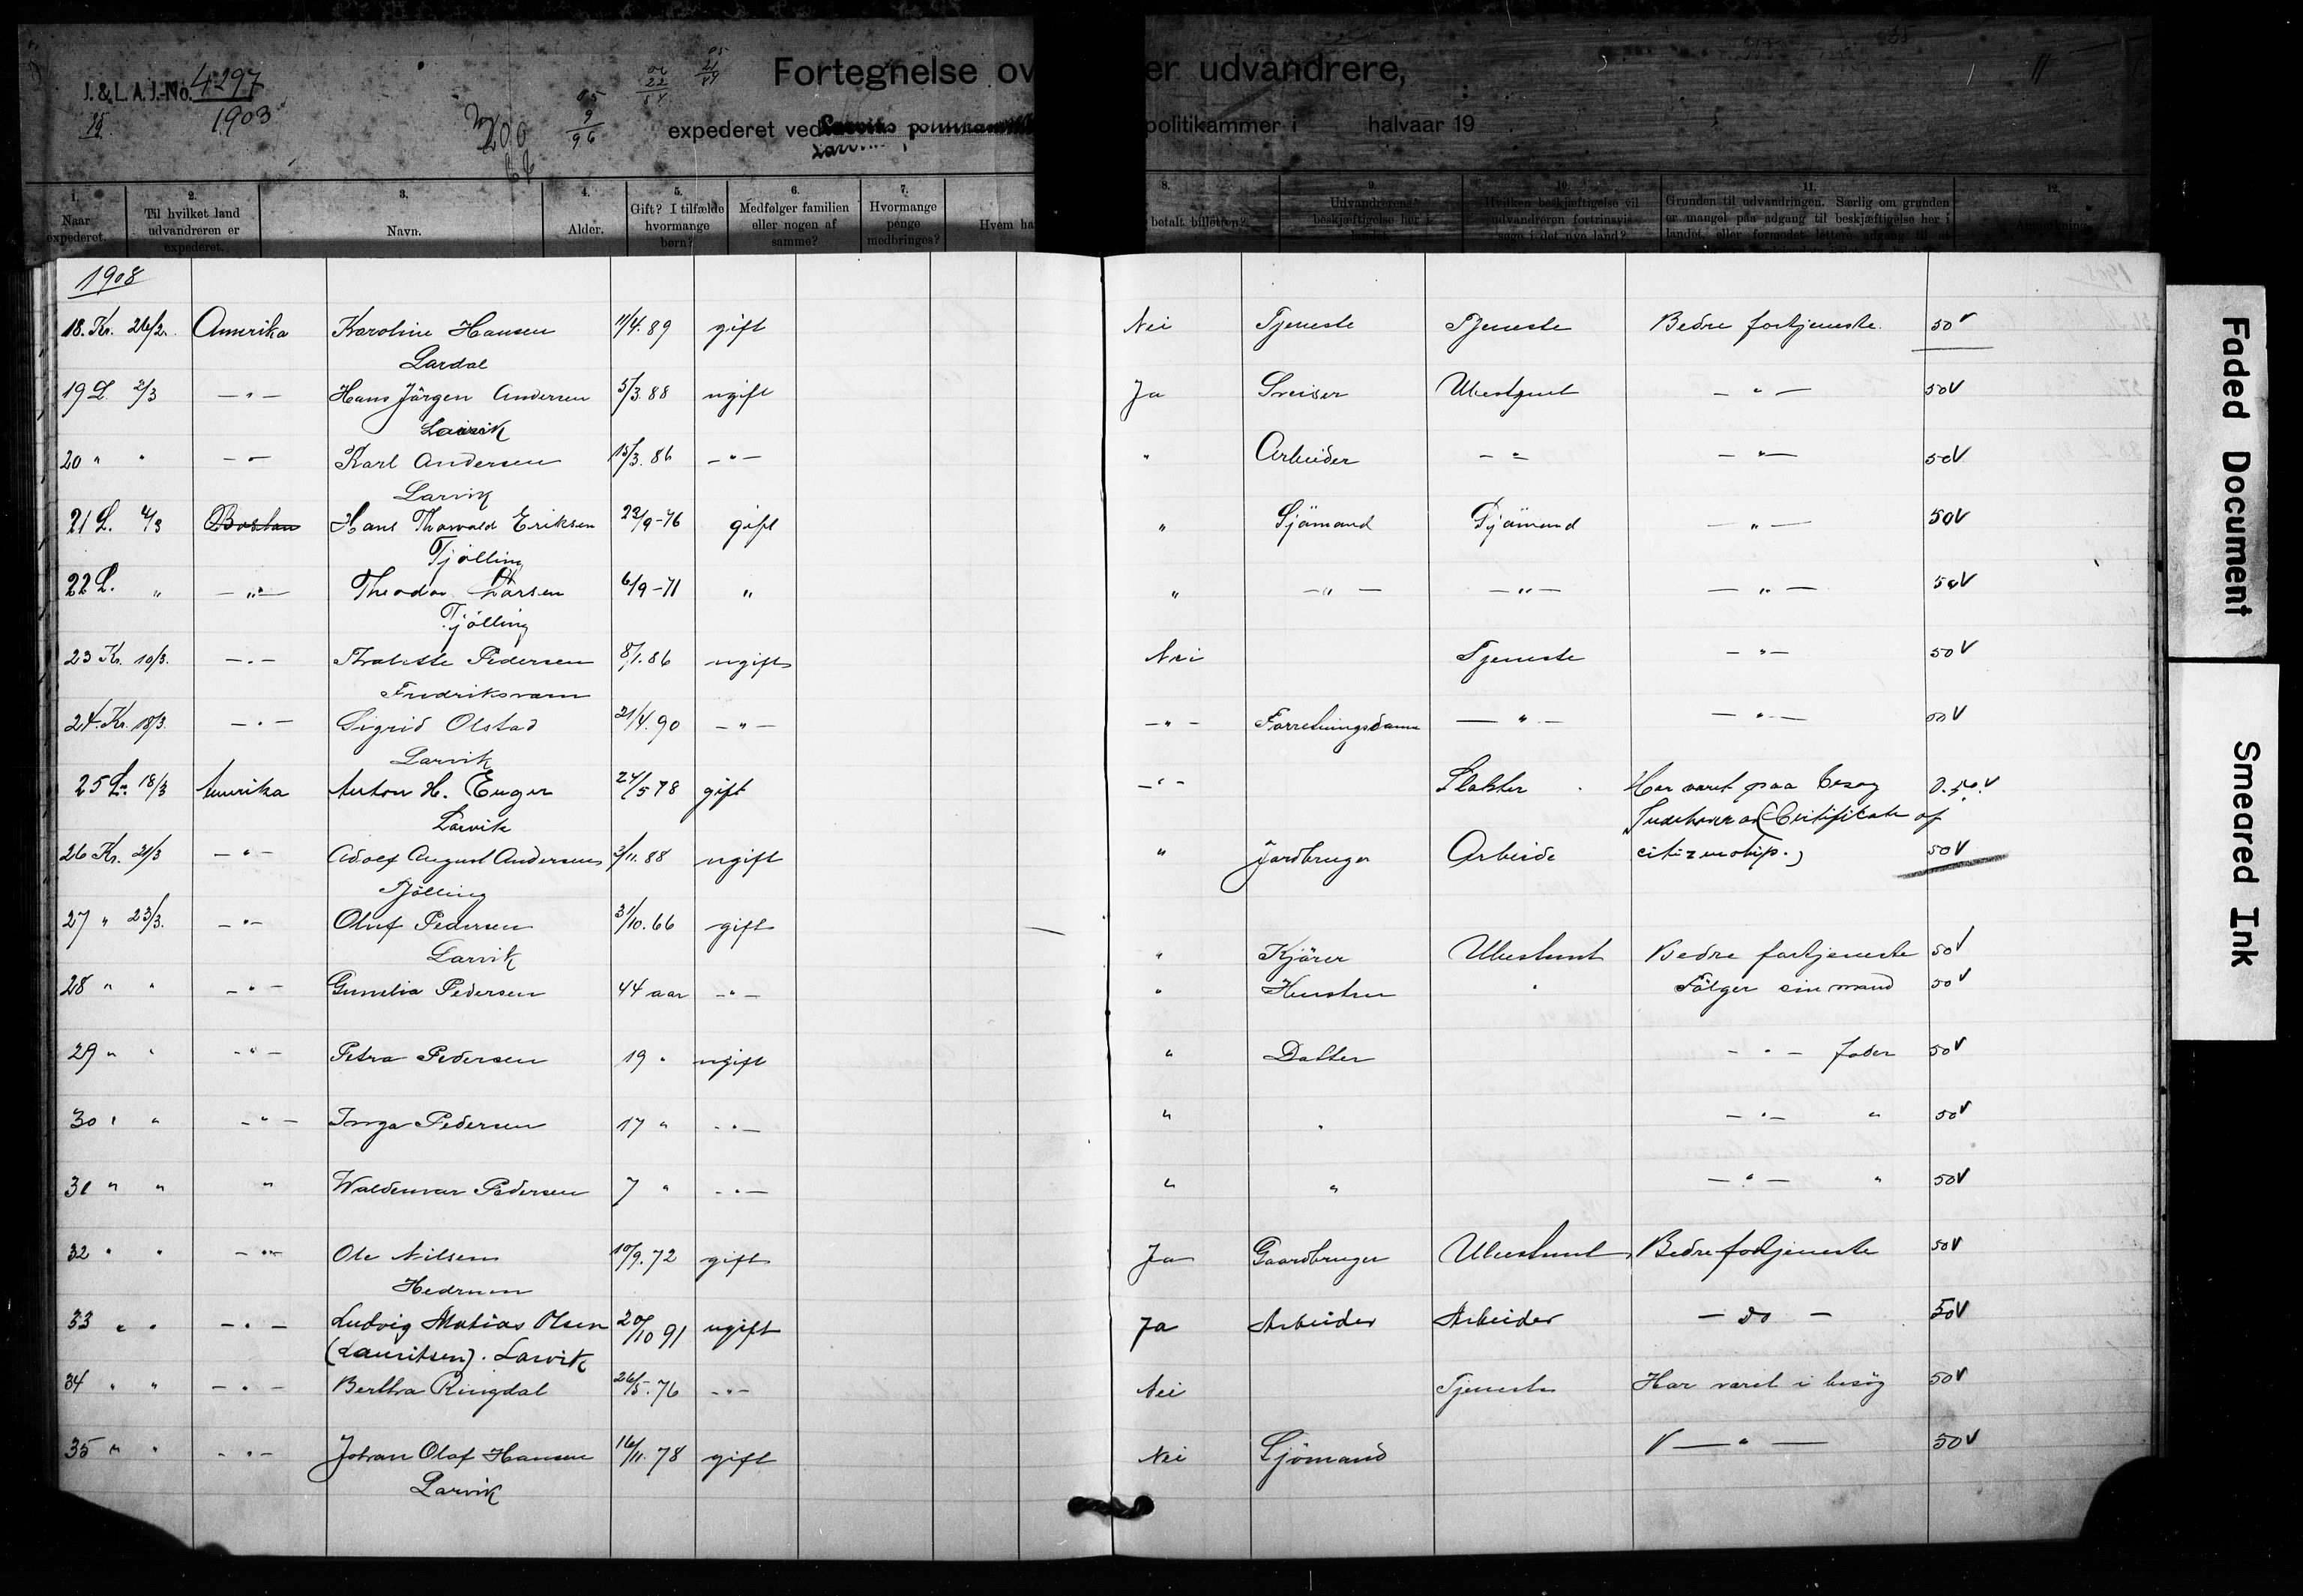 J. & L. A. J.-No. 4297
1903
200
Fortegnelse over udvandrere,
expederet ved Larviks politikammer i halvaar 19
1. Naar expederet. 2. Til hvilket land udvandreren er expederet. 3. Navn. 4. Alder. 5. Gift? I tilfælde hvormange børn? 6. Medfølger familien eller nogen af samme? 7. Hvormange penge medbringes? Hvem ha 8. betalt billetten? 9. Udvandrerens beskjæftigelse her i landet. 10. Hvilken beskjæftigelse vil udvandreren fortrinsvis søge i det nye land? 11. Grunden til udvandringen. Særlig om grunden er mangel paa adgang til beskjæftigelse her i landet, eller formodet lettere adgang til at 12. Anmerkning.
1908
18. Kr. 26/2. Amerika Karoline Hansen 11/4.89 gift Nei Tjeneste Tjeneste Bedre fortjeneste. 50 v
Lardal
19 L. 2/3 — " — Hans Jörgen Andersen 5/3.88 ugift Ja Sveiser Ubestemt — " — 50 v
Larvik
20 " " — " — Karl Andersen 15/3.86 — " — " Arbeider — " — — " — 50 v
Larvik
21 L. 4/3 Boston Hans Thorvald Eriksen 22/9-76 gift " Sjömand Sjömand — " — 50 v
Tjölling
22 L. " — " — Theodor Larsen 6/9-71 " " — " — — " — — " — 50 v
Tjölling
23 Kr. 10/3. — " — Pedersen 8/1.86 ugift Nei Tjeneste — " — 50 v
Fredriksværn
24. Kr. 18/3. — " — Sigrid Olstad 21/4.90 — " — — " — Forretningsdame — " — — " — 50 v
Larvik
25 L. 18/3 Amerika Anton H. Enger 24/5 78 gift — " — Slakter Har været paa besøg 0.50. v
Larvik Indehaver af (Certificate of
26 Kr. 21/3 — " — Adolf August Andersen 3/11.88 ugift " Jordbruger Arbeide citizenship.) 50 v
Tjölling
27 " 23/3. — " — Oluf Pedersen 31/10.66 gift " Kjörer Ubestemt Bedre fortjeneste 50 v
Larvik
28 " " — " — Gunelia Pedersen 44 aar — " — " Hustru " Fölger sin mand 50 v
29 " " — " — Petra Pedersen 19 " ugift " Datter — " — fader 50 v
30 " " — " — Inga Pedersen 17 " — " — " " — " — " 50 v
31 " " " Waldemar Pedersen 7 " — " — " " — " — " 50 v
32 " " — " — Ole Nilsen 10/9.72 gift Ja Gaardbruger Ubestemt Bedre fortjeneste 50 v
Hedrum
33 " " — " — Ludvig Matias Olsen 20/10 91 ugift Ja Arbeider Arbeider — do — 50 v
(Lauritsen). Larvik
34 " " — " — Bertha Ringdal 26/5.76 — " — Nei Tjeneste Har været i besøg 50 v
35 " " — " — Johan Olaf Hansen 16/11.78 gift Nei Sjömand v — " — 50 v
Larvik
Faded Document
Smeared Ink